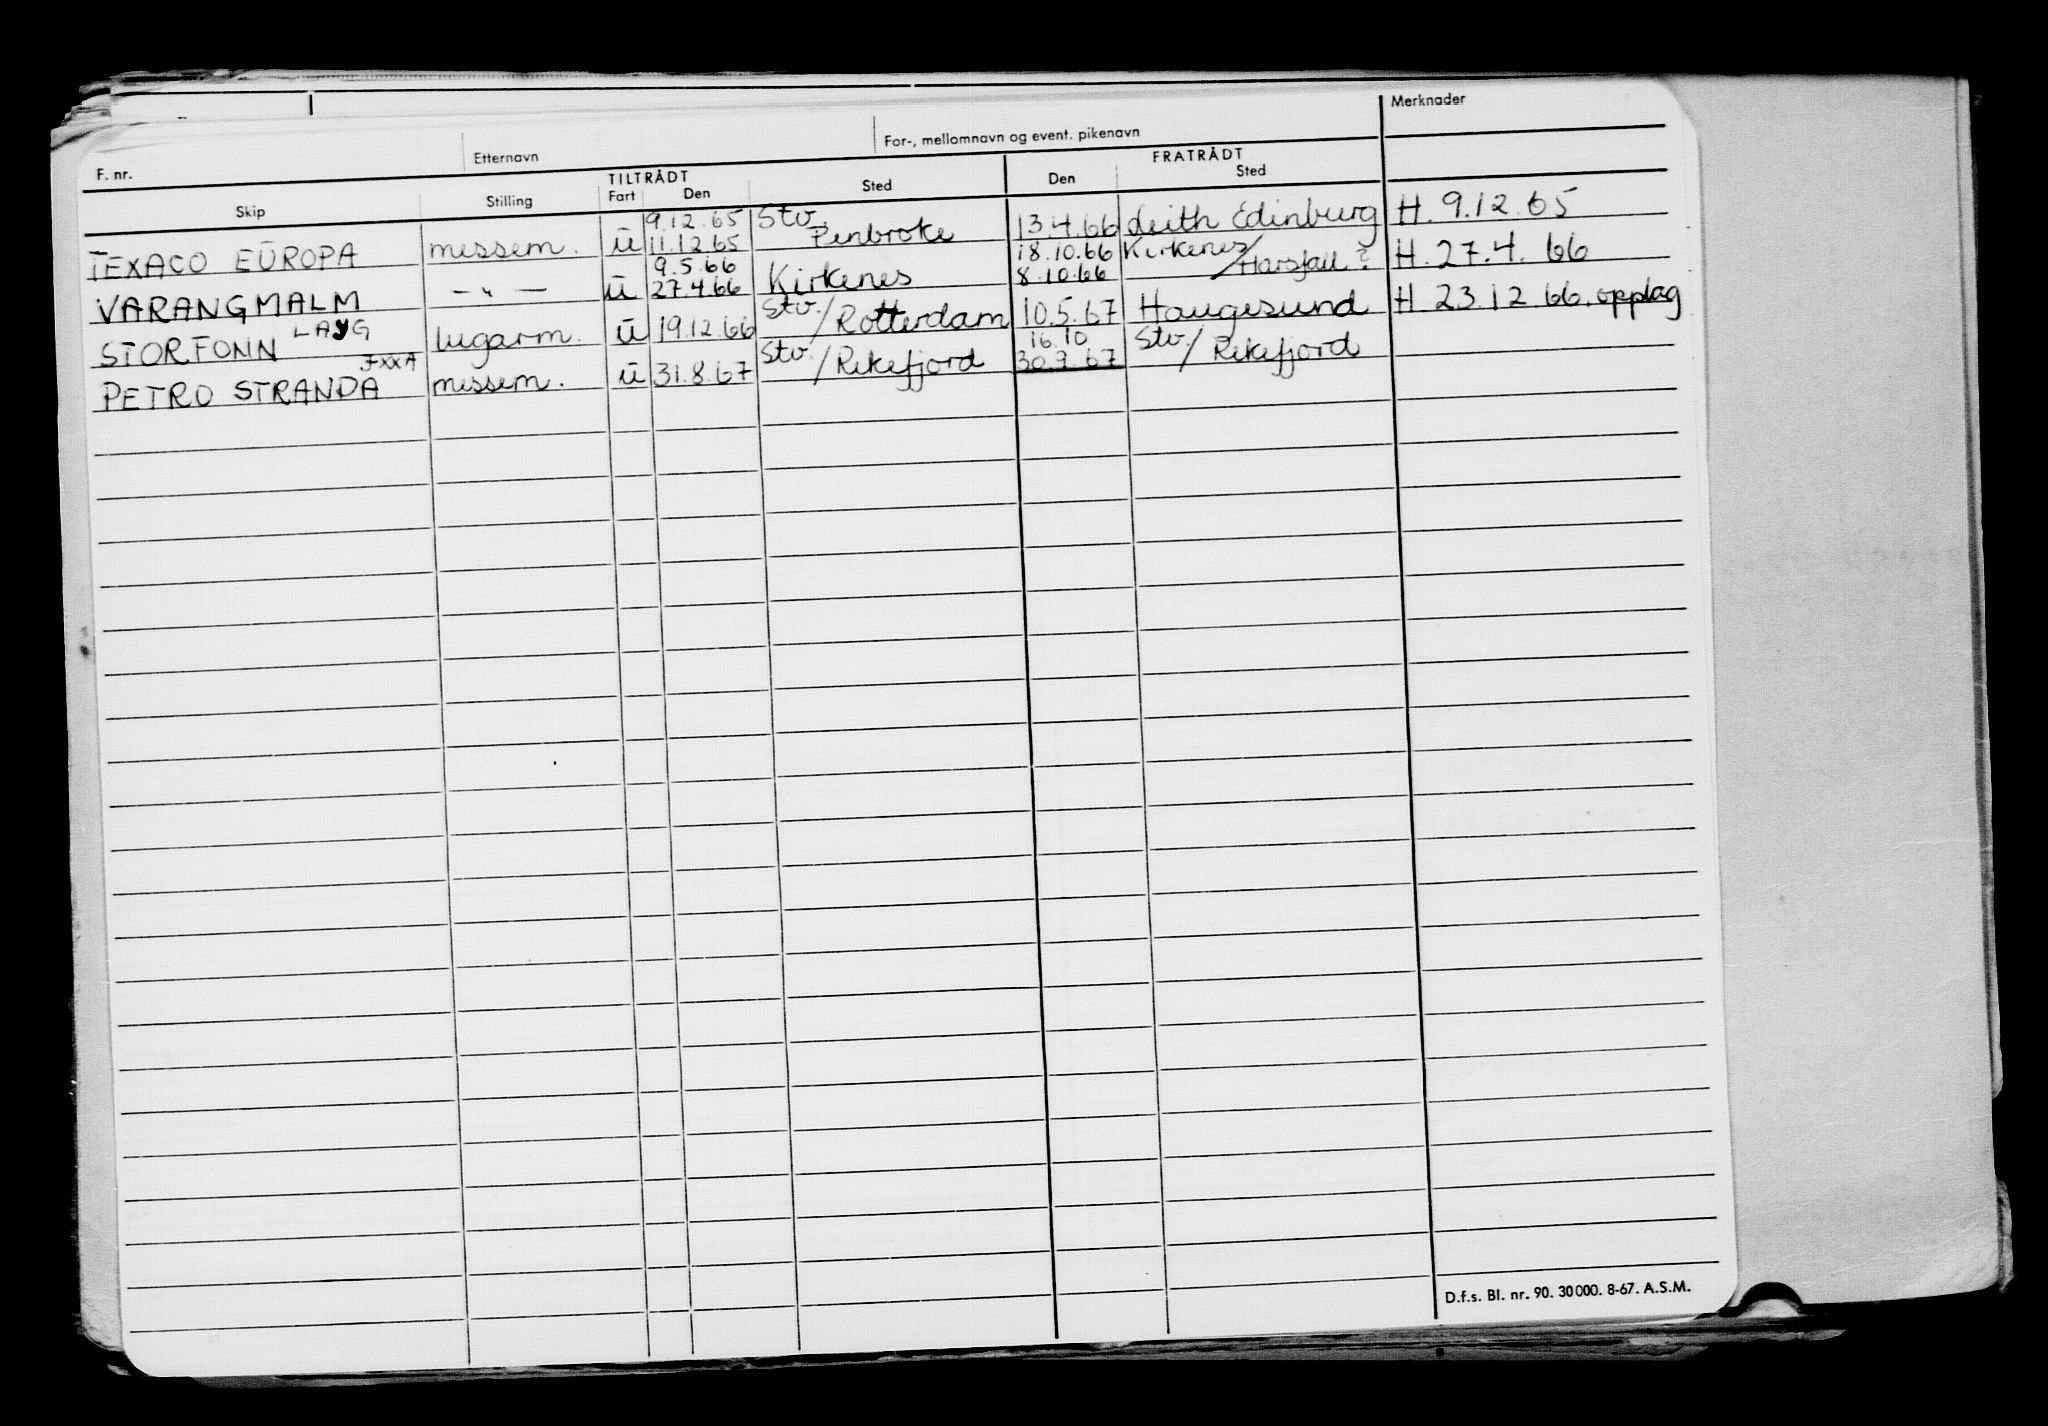 F. nr. Etternavn For-, mellomnavn og event. pikenavn Merknader
TILTRÅDT FRATRÅDT
Skip Stilling Fart Den Sted Den Sted
9.12.65 Stv.
TEXACO EUROPA messem. u 11.12.65 Penbroke 13.4.66 Leith Edinburg H. 9.12.65
9.5.66 18.10.66 Kirkenes/
VARANGMALM — " — u 27.4.66 Kirkenes 8.10.66 Harsfall? H. 27.4.66
LAYG
STORFONN lugarm. u 19.12.66 Stv./Rotterdam 10.5.67 Haugesund H. 23.12.66. opplag
JXXA 16.10
PETRO STRANDA messem. u 31.8.67 Stv./Rekefjord 30.9.67 Stv./Rekefjord
D.f.s. Bl. nr. 90. 30000. 8-67. A.S.M.